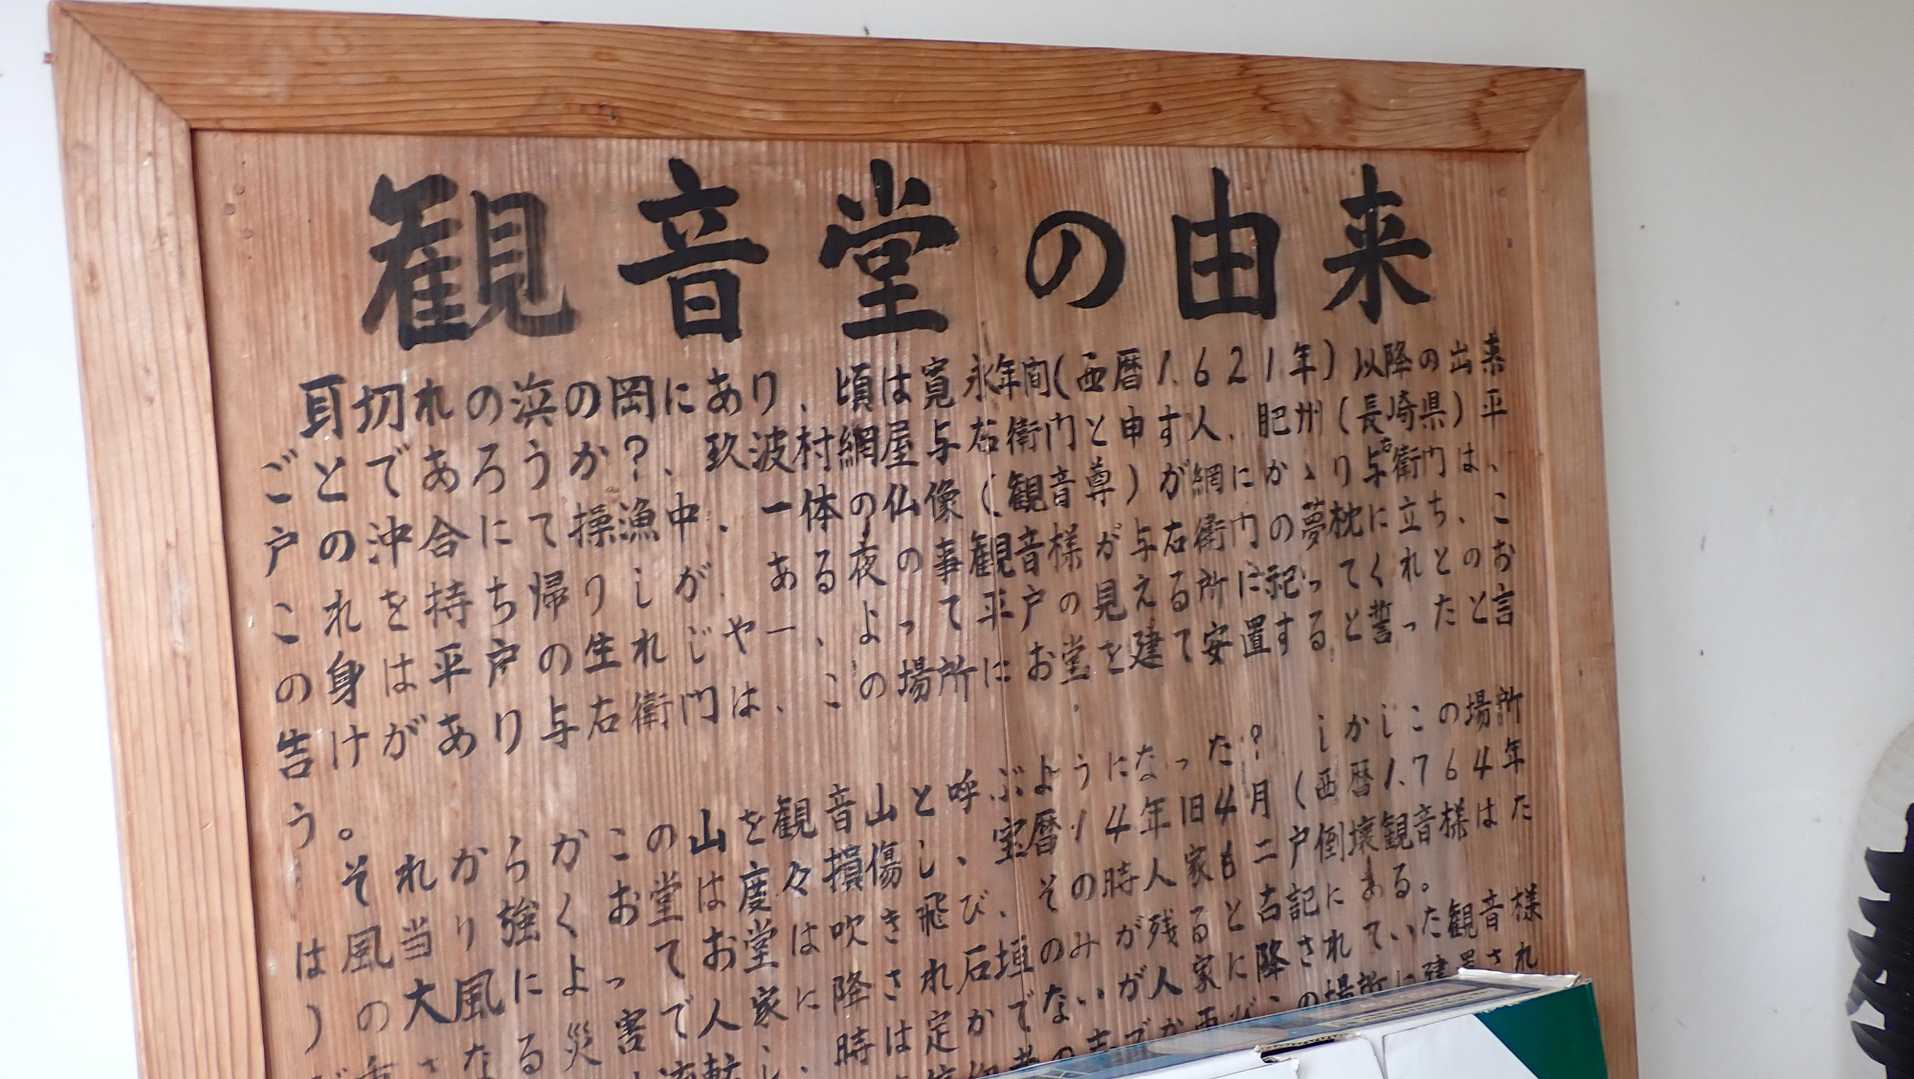 観音堂の由来
耳切れの浜の岡にあり、頃は寛永年間(西暦1.621年)以降の出来
ごとであろうか?、玖波村網屋与右衛門と申す人、肥州(長崎県)平
戸の沖合にて操漁中、一体の仏像(観音尊)が網にかゝり与右衛門は、
これを持ち帰りしが、ある夜の事観音様が与右衛門の夢枕に立ち、こ
の身は平戸の生れじゃー、よって平戸の見える所に祀ってくれとのお
告けがあり与右衛門は、この場所にお堂を建て安置すると誓ったと言
う。
それからかこの山を観音山と呼ぶようになった? しかしこの場所
は風当り強くお堂は度々損傷し、宝暦14年旧4月(西暦1.764年
)の大風によってお堂は吹き飛び、その時人家も二戸倒壊観音様はた
重なる災害で人家に降され石垣のみが残ると古記にある。
時は定かでないが人家に降されていた観音様
再びこの場所に建置され